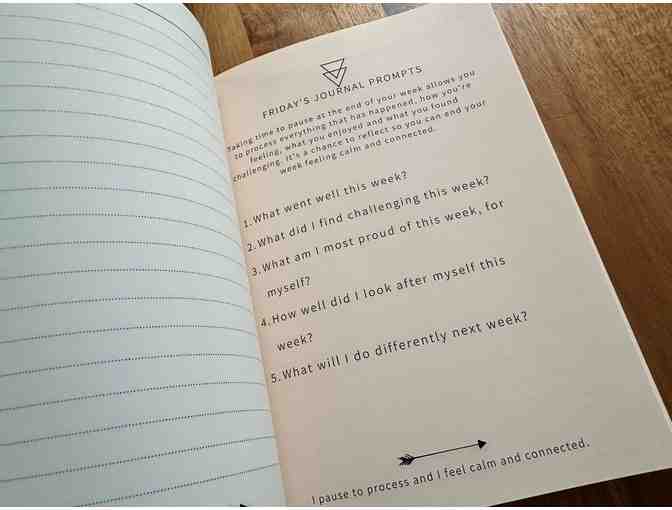 FRIDAY'S JOURNAL PROMPTS
Taking time to pause at the end of your week allows you
to process everything that has happened, how you're
feeling, what you enjoyed and what you found
challenging. It's a chance to reflect so you can end your
week feeling calm and connected.
1.What went well this week?
2.What did I find challenging this week?
3.What am I most proud of this week, for
myself?
4.How well did I look after myself this
week?
5.What will I do differently next week?
I pause to process and I feel calm and connected.